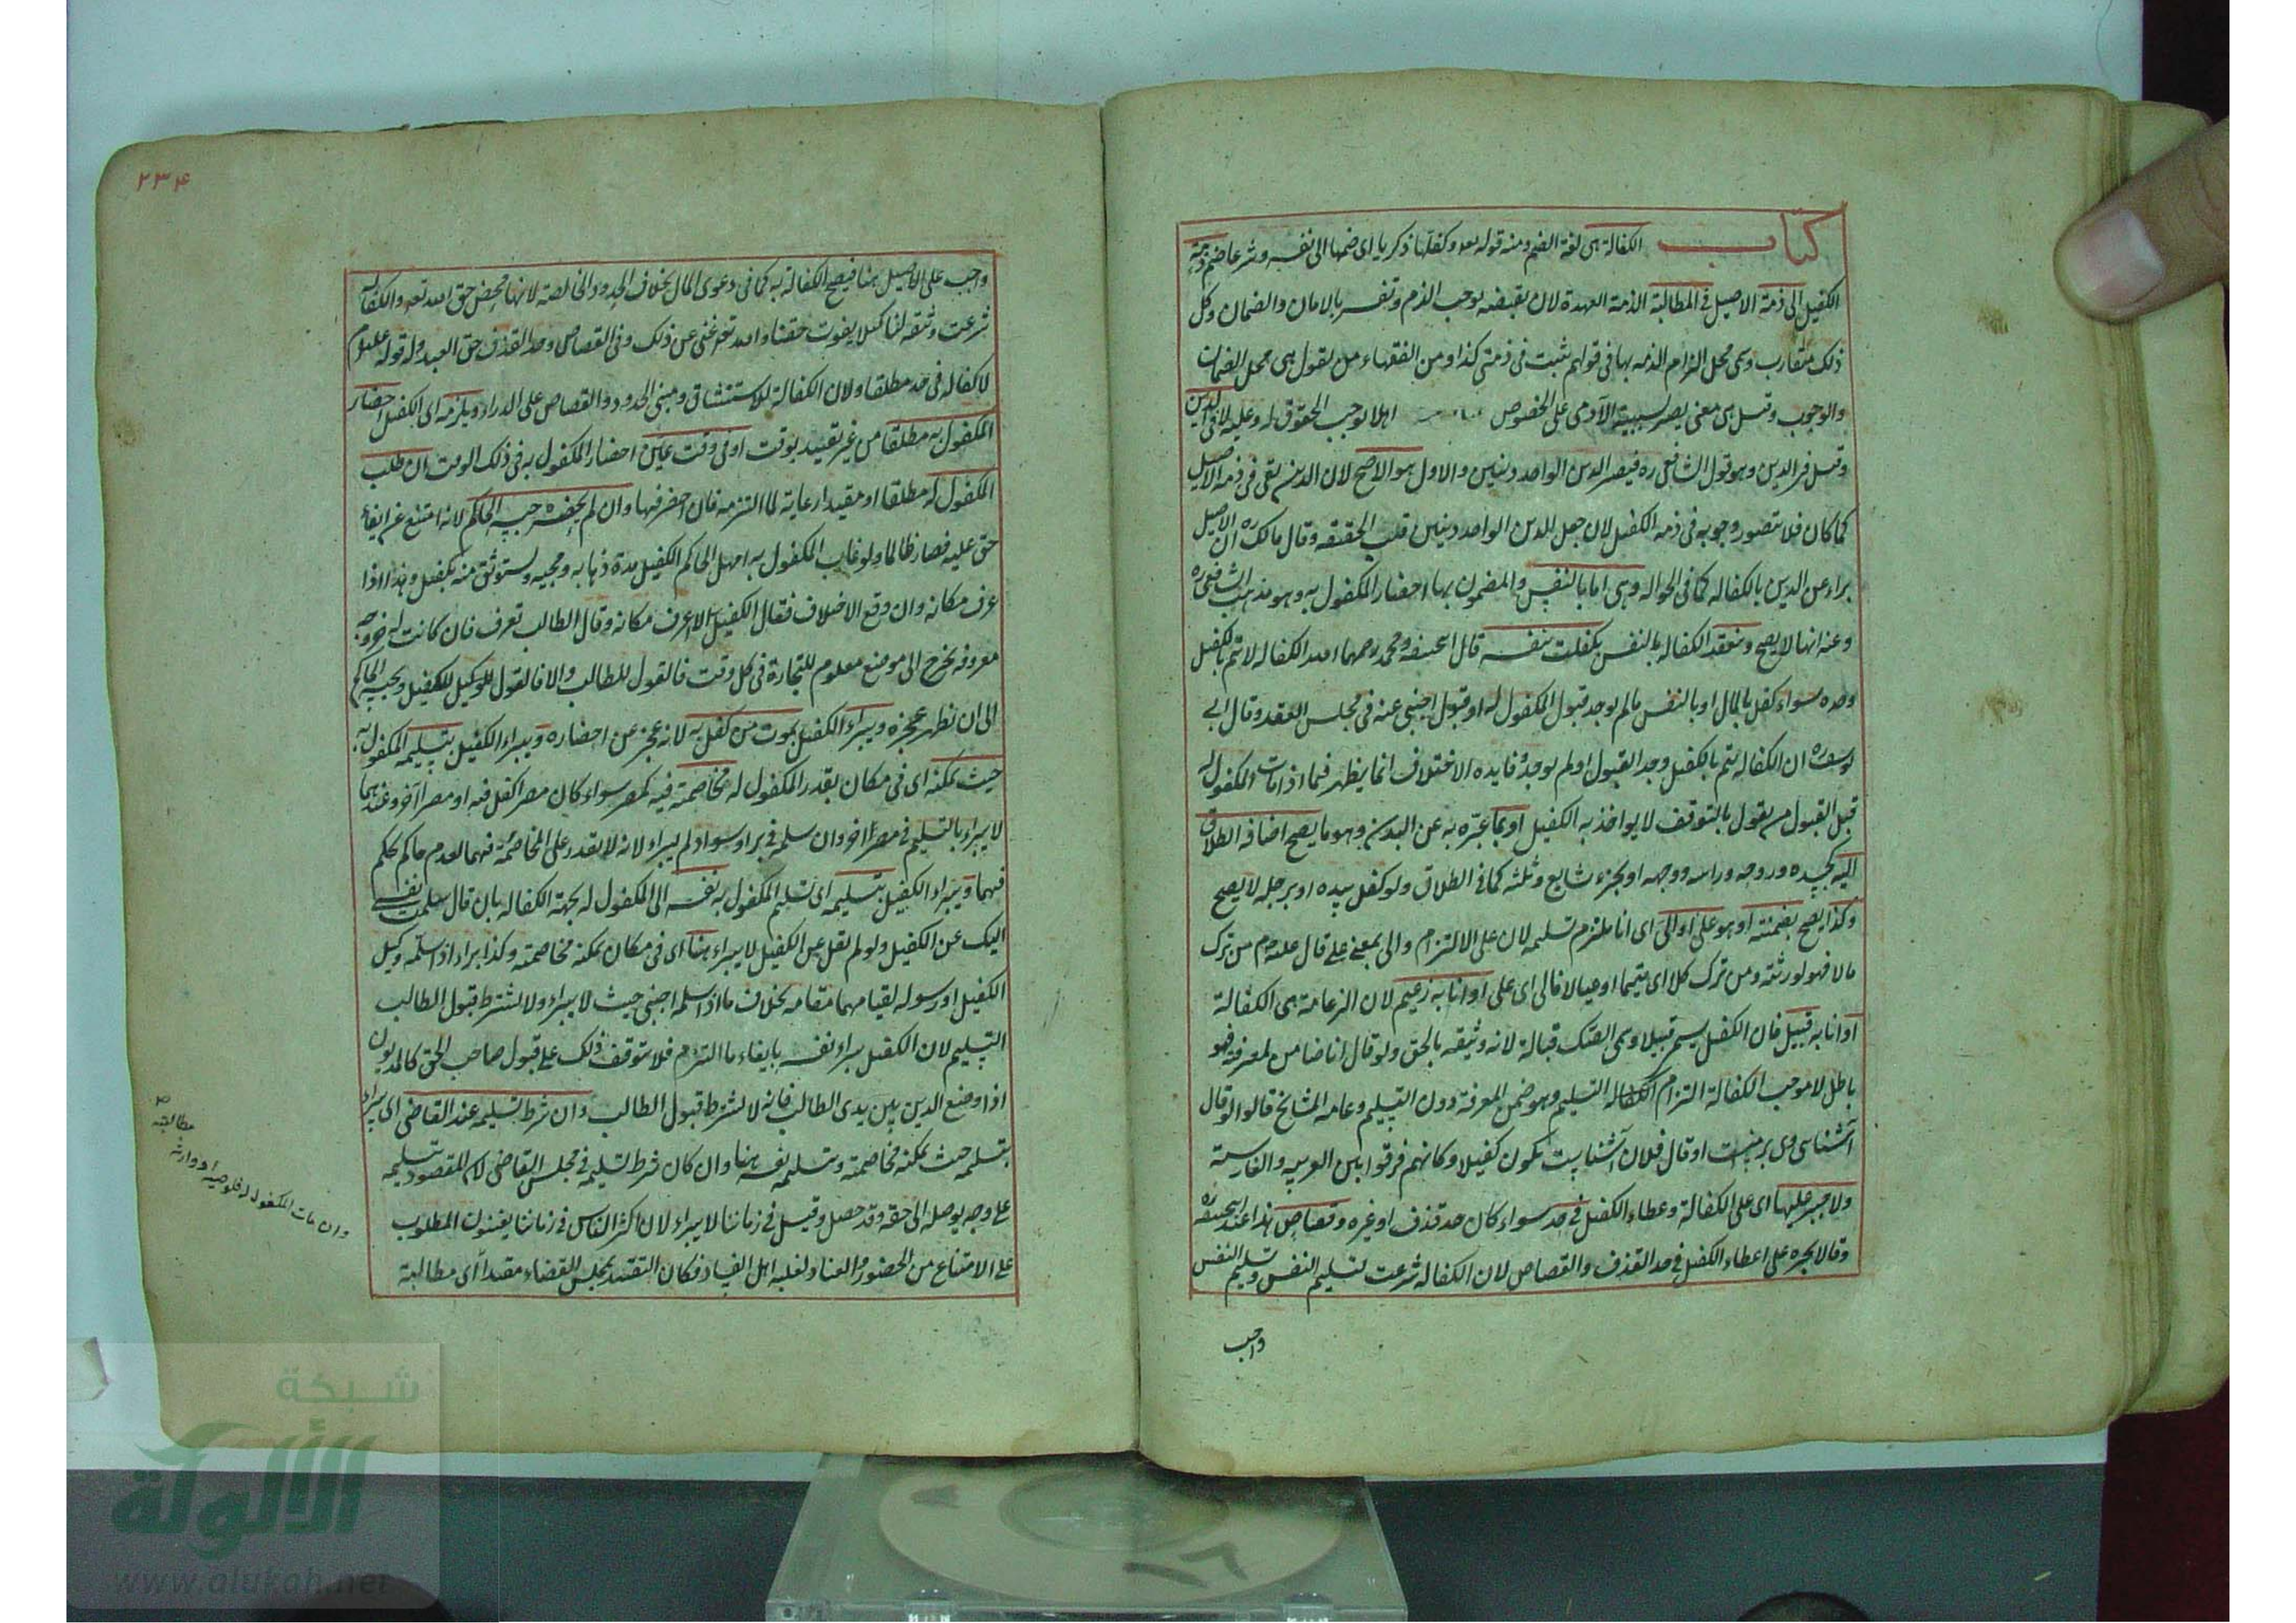 كتاب الكفالة هى لغة الضم ومنه قوله تعه وكفلها زكريا اى ضمها الى نفسه وشرعا ضم ذمة
الكفيل الى ذمة الاصيل فى المطالبة الذمة العهدة لان نقيضه يوجب الذم وتفسر بالامان والضمان وكل
ذلك متقارب وسمى محل التزام الذمه بها فى قولهم ثبت فى ذمتى كذا ومن الفقهاء من يقول هى محل الضمان
والوجوب وقيل هى معنى يصير بسببه الآدمى على الخصوص اهلا لوجوب الحقوق له وعليه لا فى الدين
وقيل فى الدين وهو قول الشافعى ره فيصير الدين الواحد دينين والاول هو الاصح لان الدين يبقى فى ذمه الاصيل
كما كان فلا يتصور وجوبه فى ذمه الكفيل لان جعل الدين الواحد دينين قلب الحقيقه وقال مالك ره ان الاصيل
براء عن الدين بالكفاله كما فى الحواله وهى اما بالنفس والمضمون بها احضار المكفول به وهو مذهب الشافعى ره
وعنه انها لا يصح وتنعقد الكفاله بالنفس بكفلت بنفسه قال ابحنيفه ومحمد رحمهما الله الكفاله لا تتم بالكفيل
وحده سواء كفل بالمال او بالنفس مالم يوجد قبول المكفول له او قبول اجنبى عنه فى مجلس العقد وقال ابى
يوسف ره ان الكفاله يتم بالكفيل وجد القبول او لم يوجد وفايده الاختلاف انما يظهر فيما اذا مات المكفول له
قبل القبول من يقول بالتوقف لا يواخذ به الكفيل او بما عبر به عن البدن وهو ما يصح اضافه الطلاق
اليه كجسده وروحه وراسه ووجهه او بجزء شايع وثلثه كما فى الطلاق ولو كفل بيده او برجله لا يصح
وكذا يصح بضمنته او هو على او الى اى انا ملتزم تسليمه لان على الالتزام والى بمعنى على قال علم من ترك
مالا فهو لورثته ومن ترك كلا اى يتيما او عيالا فالى اى على او انا به زعيم لان الزعامة هى الكفالة
او انا به قبيل فان الكفيل يسمى قبيلا وسمى الصك قبالة لانه وثيقه بالحق ولو قال انا ضامن لمعرفته فهو
باطل لا موجب الكفالة التزام الكفاله التسليم وهو ضمن المعرفة دون التسليم وعامه المشايخ قالوا لو قال
آشنائى وى بر منست او قال فلان آشنايست يكون كفيلا وكانهم فرقوا بين العربيه والفارسية
ولا جبر عليها اى على الكفالة وعطاء الكفيل فى حد سواء كان حد قذف او غيره وقصاص هذا عند ابحنيفه ره
وقالا يجبره على اعطاء الكفيل فى حد القذف والقصاص لان الكفاله شرعت لتسليم النفس وتسليم النفس
واجب
٢٣٤
واجب على الاصيل هنا فيصح الكفالة به كما فى دعوى المال بخلاف الحدود الخالصه لانها محض حق الله تعه والكفاله
شرعت وثيقه لنا كيلا يفوت حقنا والله تعه غنى عن ذلك وفى القصاص وحد القذف حق العبد وله قوله علم
لا كفاله فى حد مطلقا ولان الكفالة للاستيثاق ومبنى الحدود والقصاص على الدراء ويلزمه اى الكفيل احضار
المكفول به مطلقا من غير تقييد بوقت او فى وقت عين احضار المكفول به فى ذلك الوقت ان طلب
المكفول له مطلقا او مقيدا رعاية لما التزمه فان احضر فبها وان لم يحضره حبسه الحاكم لانه امتنع عن ايفاء
حق عليه فصار ظالما ولو غاب المكفول به امهل الحاكم الكفيل مدة ذهابه ومجيه ويستوثق منه بكفيل وهذا اذا
عرف مكانه وان وقع الاختلاف فقال الكفيل لا اعرف مكانه وقال الطالب تعرف فان كانت له خروجه
معروفه يخرج الى موضع معلوم للتجارة فى كل وقت فالقول للطالب والا فالقول للوكيل للكفيل ويحبسه الحاكم
الى ان يظهر عجزه ويبراء الكفيل بموت من كفل به لانه عجز عن احضاره ويبراء الكفيل بتسليمه المكفول به
حيث يمكنه اى فى مكان يقدر المكفول له مخاصمته فيه كمصر سواء كان مصرا كفل فيه او مصرا آخر وعندهما
لا يبراء بالتسليم فى مصر آخر وان سلم فى برا وسواد لم يبراء لانه لا يقدر على المخاصمة فيهما لعدم حاكم يحكم
فيهما ويبراء الكفيل بتسليمه اى تسليم المكفول به نفسه الى المكفول له بجهة الكفاله بان قال سلمت نفسى
اليك عن الكفيل ولو لم يقل عن الكفيل لا يبراء هنا اى فى مكان يمكنه مخاصمته وكذا براء اذا سلمه وكيل
الكفيل او رسوله لقيامهما مقامه بخلاف ما اذا سلمه اجنبى حيث لا يبراء ولا يشترط قبول الطالب
التسليم لان الكفيل يبراء نفسه بايفاء ما التزم فلا يتوقف ذلك على قبول صاحب الحق كالمديون
اذا وضع الدين بين يدى الطالب فانه لا يشترط قبول الطالب وان شرط تسليمه عند القاضى اى يبراء
بتسلمه حيث يمكنه مخاصمته وتسليمه نفسه هنا وان كان شرط تسليمه فى مجلس القاضى لان المقصود تسليمه
على وجه يوصله الى حقه وقد حصل وقيل فى زماننا لا يبراء لان اكثر الناس فى زماننا يعينون المطلوب
على الامتناع من الحضور والعناد لغلبه اهل الفساد فكان التقييد بمجلس القضاء مقيدا اى مطالبة
وان مات المكفول له فلوصيه او وارثه
مطالبته
شبكة
الألوكة
www.alukah.net